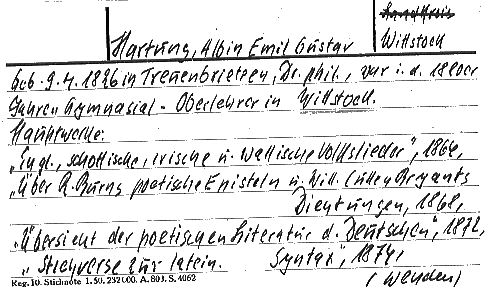 Landkreis
Hartung, Albin Emil Gustav Wittstock
Geb. 9.4.1826 in Treuenbrietzen, Dr. phil., war i. d. 1860er
Jahren Gymnasial-Oberlehrer in Wittstock.
Hauptwerke:
„Engl., schottische, irische u. wallische Volkslieder", 1864,
„Über R. Burns poetische Episteln u. Will. Cullen Bryants
Dichtungen, 1868,
„Übersicht der poetischen Literatur d. Deutschen", 1872,
„Merkverse zur latein. Syntax", 1874,
(Wenden)
Reg. 10. Stichnote 1. 50. 232000. A. 803. S. 4062